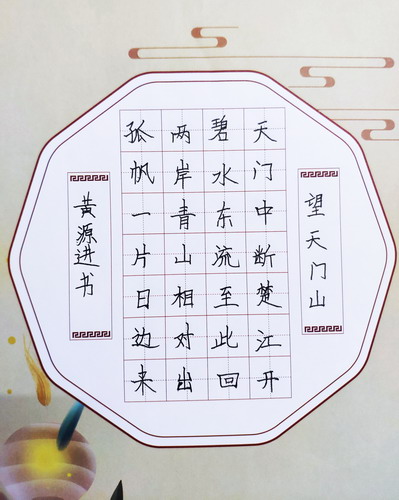 望天门山
天门中断楚江开
碧水东流至此回
两岸青山相对出
孤帆一片日边来
黄源进书